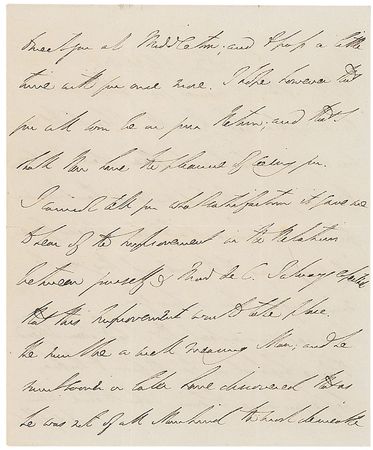 meet you at Middleton; and to pass a little
time with you once more. I hope however that
you will soon be on your Return; and that I
shall then have the pleasure of seeing you.
I cannot tell you what satisfaction it gave me
to hear of the improvement in the Relations
between yourself & Mad de C. I always expected
that this improvement would take place.
He must be a well meaning Man; and he
must sooner or later have discovered that as
he was not of all Mankind the most